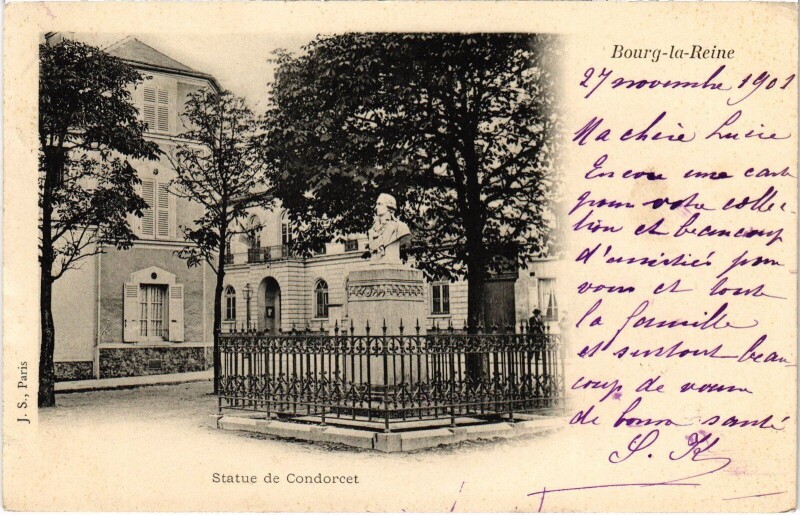 Bourg-la-Reine
27 novembre 1901
Ma chère Lucie
Encore une carte
pour votre collec-
tion et beaucoup
d'amitiés pour
vous et toute
la famille
et surtout beau-
coup de vœux
de bonne santé
S. K.
J. S., Paris
Statue de Condorcet